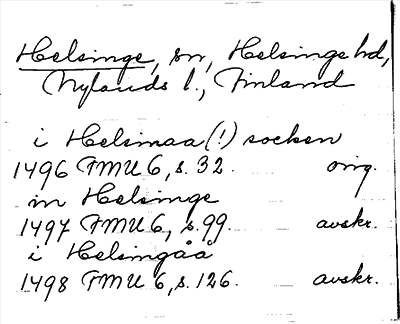 Helsinge, sn, Helsinge hd,
Nylands l., Finland
i Helsinaa (!) socken
1496 FMU 6, s. 32. orig.
in Helsinge
1497 FMU 6, s. 99. avskr.
i Helsingåå
1498 FMU 6, s. 126. avskr.